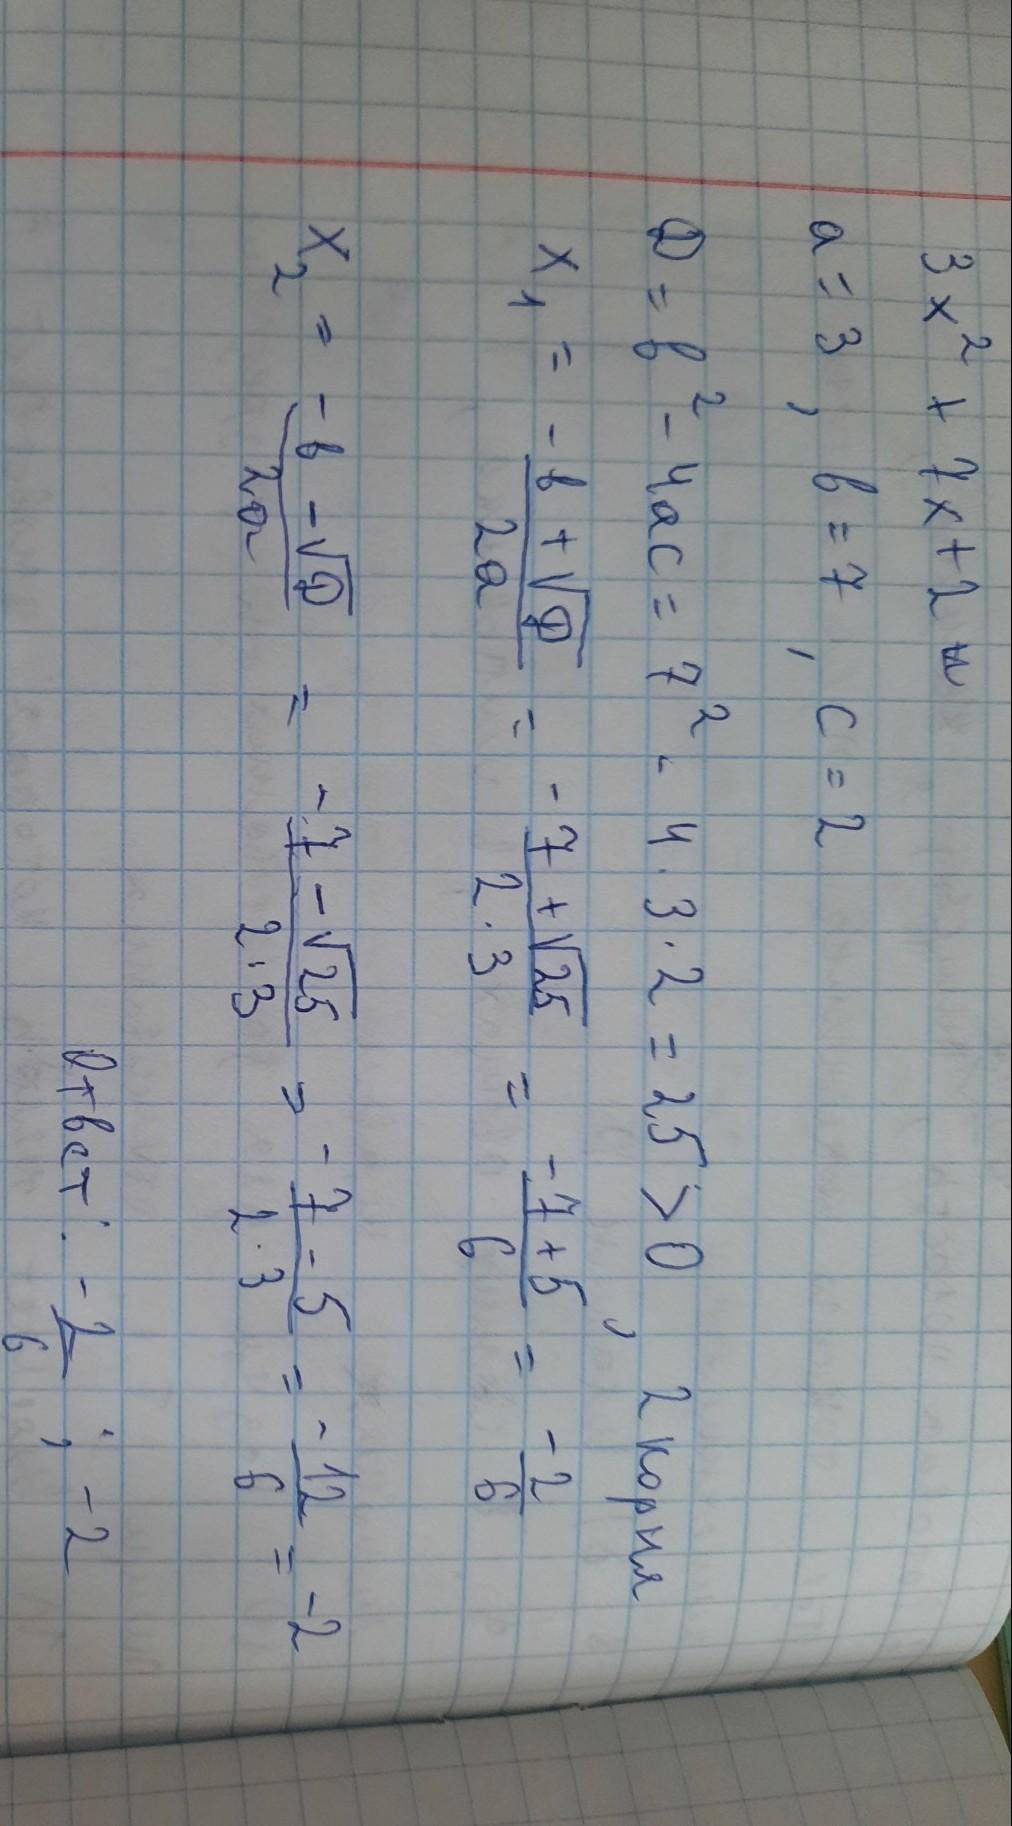 3x² + 7x + 2
a = 3, b = 7, c = 2
D = b² - 4ac = 7² - 4·3·2 = 25 > 0, 2 корня
x₁ = (-b + √D)/(2a) = (-7 + √25)/(2·3) = (-7 + 5)/6 = -2/6
x₂ = (-b - √D)/(2a) = (-7 - √25)/(2·3) = (-7 - 5)/(2·3) = -12/6 = -2
Ответ: -2/6; -2